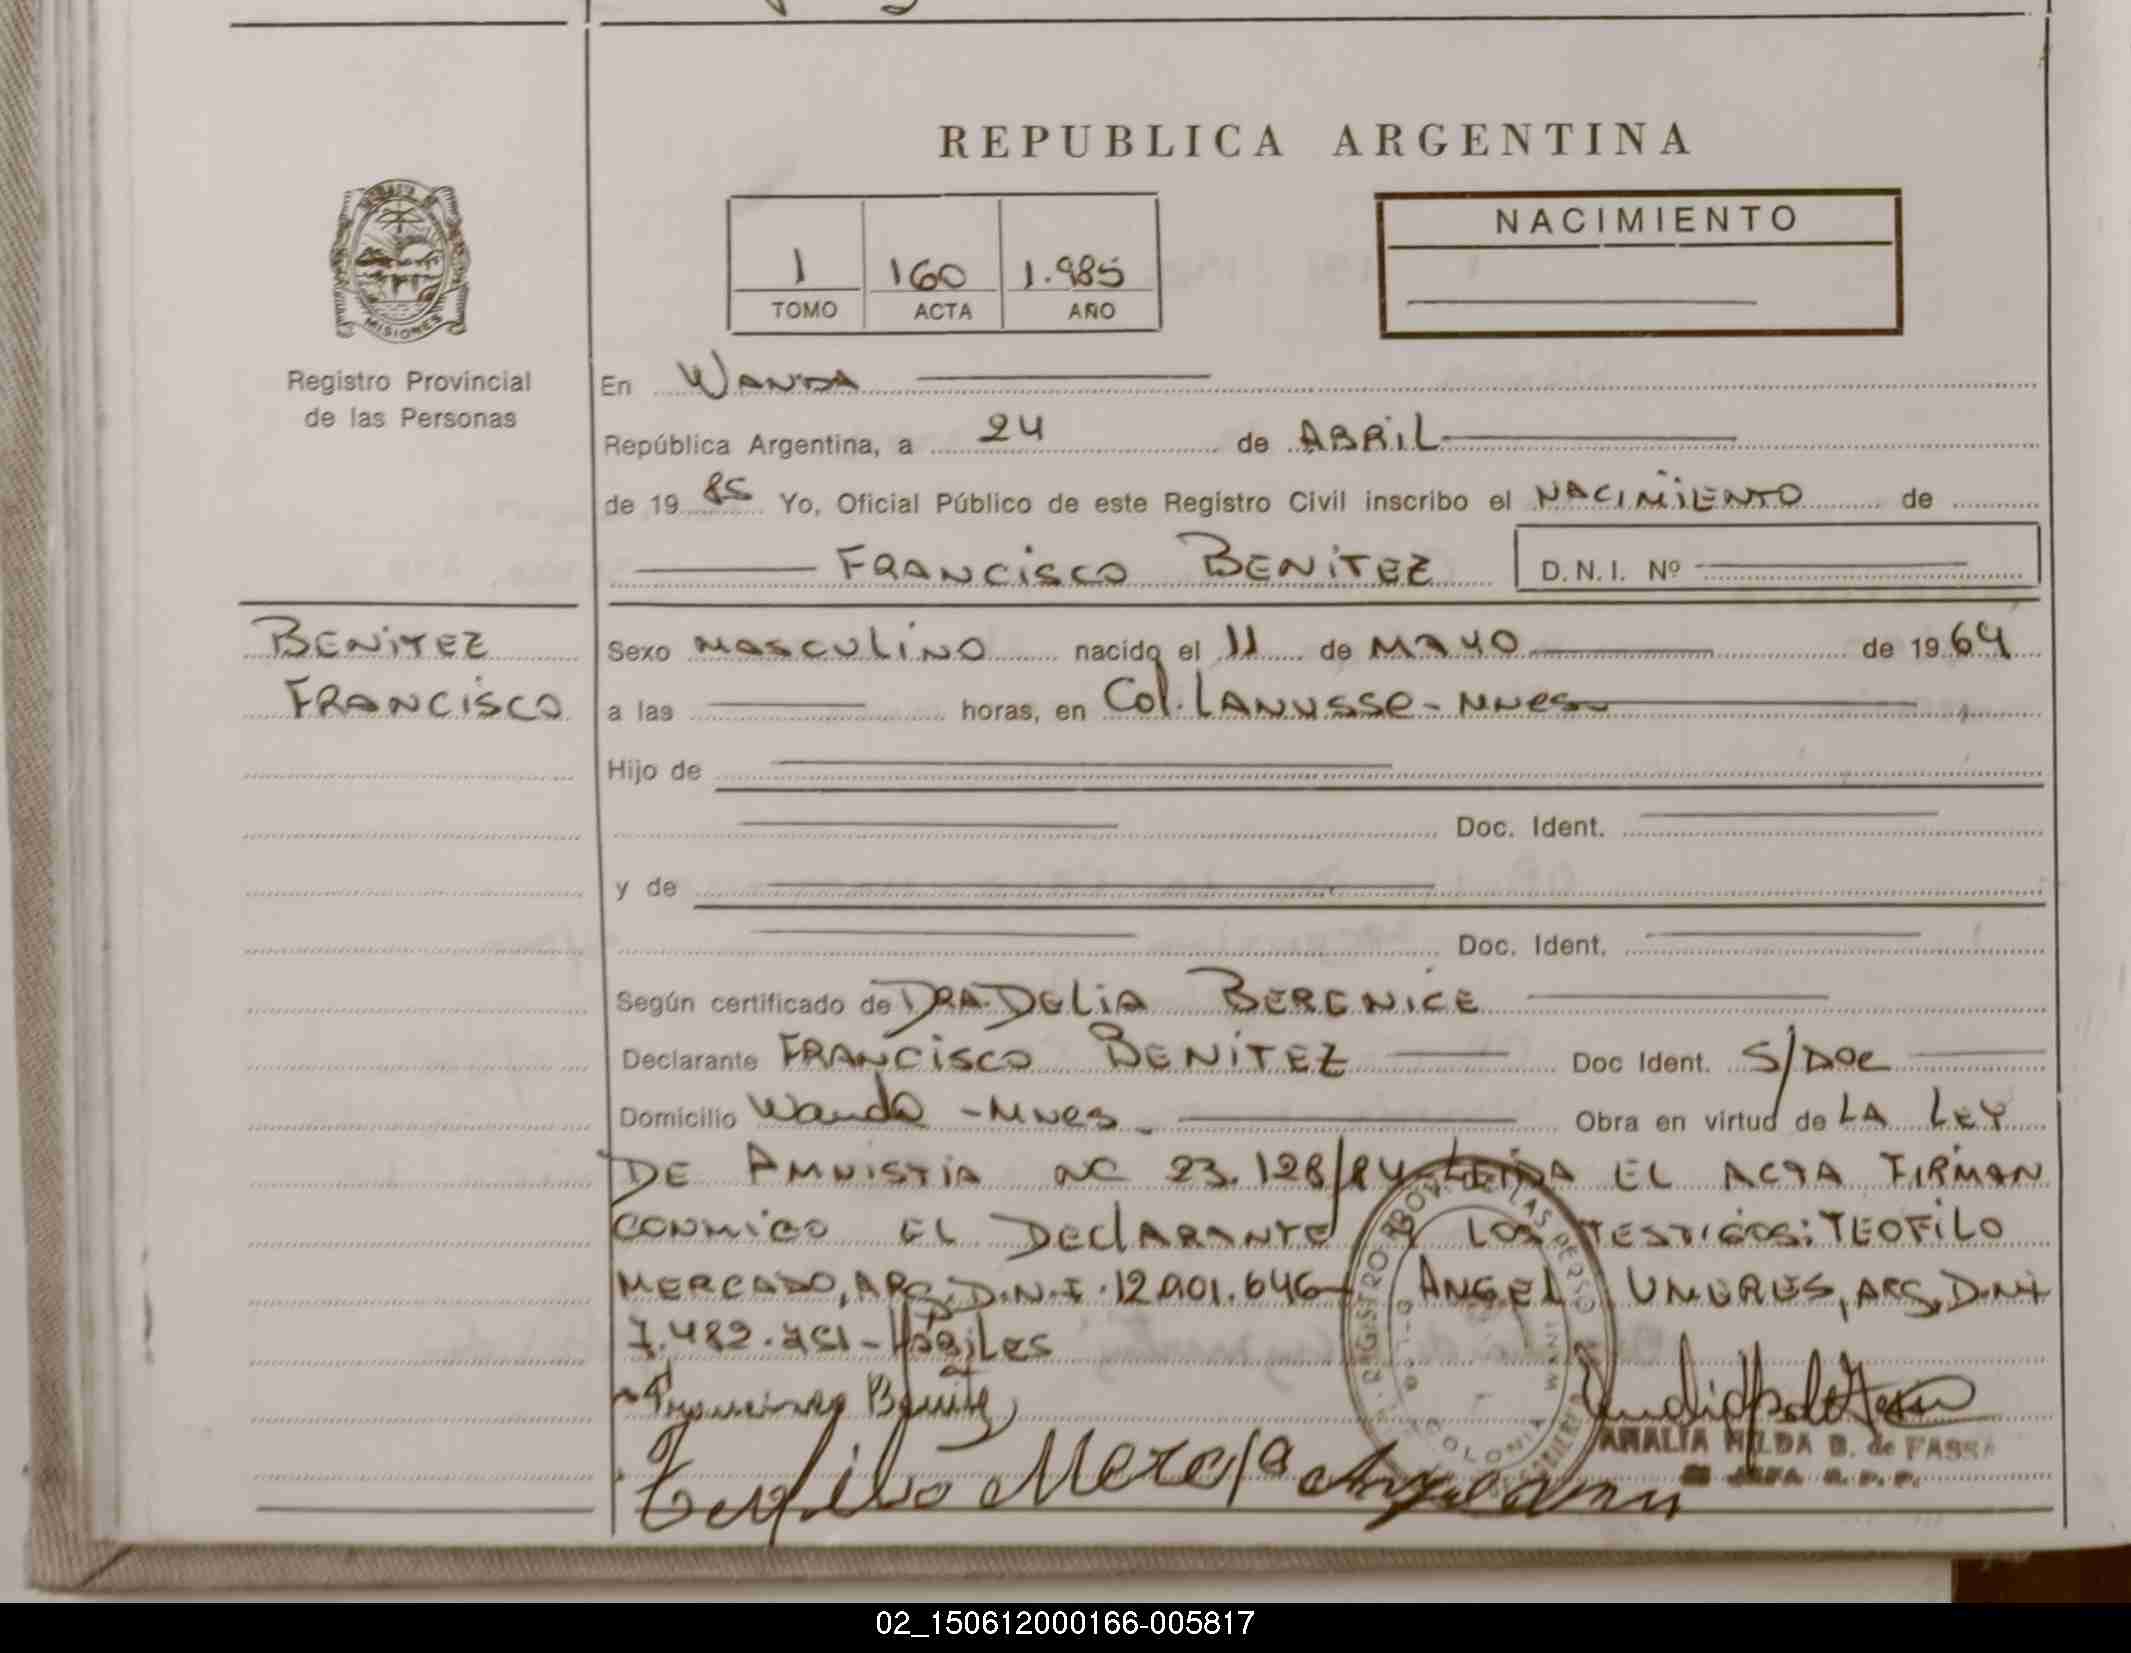 REPUBLICA ARGENTINA
NACIMIENTO
1 160 1.985
TOMO ACTA AÑO
MISIONES
Registro Provincial
de las Personas
En WANDA
República Argentina, a 24 de ABRIL
de 19 85 Yo, Oficial Público de este Registro Civil inscribo el NACIMIENTO de
FRANCISCO BENITEZ D.N.I. Nº
BENITEZ
FRANCISCO
Sexo MASCULINO nacido el 11 de MAYO de 19 64
a las horas, en Col. LANUSSE - MNES
Hijo de
Doc. Ident.
y de
Doc. Ident.
Según certificado de DRA. DELIA BERENICE
Declarante FRANCISCO BENITEZ Doc Ident. S/DOC
Domicilio Wanda - MNES - Obra en virtud de LA LEY
DE AMNISTIA NC 23.128/84 - LEIDA EL ACTA FIRMAN
CONMIGO EL DECLARANTE Y LOS TESTIGOS: TEOFILO
MERCADO, ARG. D.N.I. 12.901.646 - ANGEL ARG. D.N.I
7.482. - HÁBILES
Francisco Benitez
Teofilo Mercado
AMALIA HILDA B. de FASSA
JEFA R.P.P.
REGISTRO PROV. DE LAS PERSO
COLONIA
02_150612000166-005817